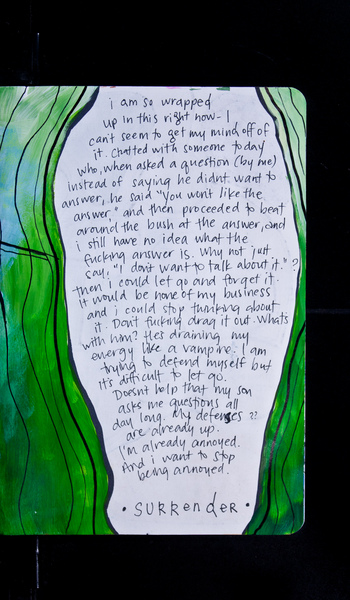 i am so wrapped
up in this right now - I
can't seem to get my mind off of
it. Chatted with someone today
who, when asked a question (by me)
instead of saying he didnt want to
answer, he said "you won't like the
answer," and then proceeded to beat
around the bush at the answer, and
i still have no idea what the
fucking answer is. Why not just
say: "I don't want to talk about it."?
then I could let go and forget it.
It would be none of my business
and i could stop thinking about
it. Don't fucking drag it out. Whats
with him? Hes draining my
energy like a vampire. I am
trying to defend myself but
it's difficult to let go.
Doesnt help that my son
asks me questions all
day long. My defenses ??
are already up.
I'm already annoyed.
And i want to stop
being annoyed.
• SURRENDER •